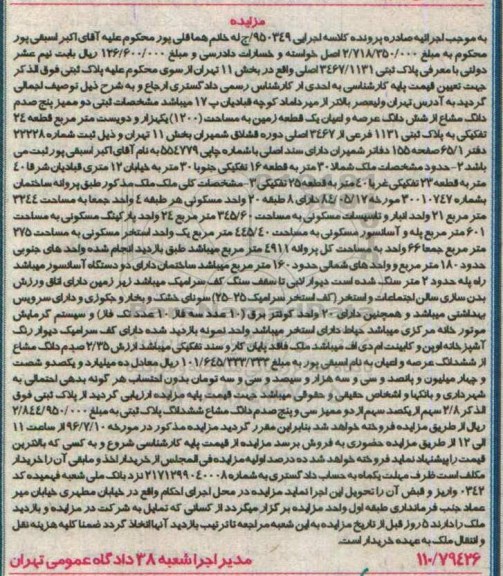 مزایده
به موجب اجرائیه صادره پرونده کلاسه اجرایی 950349/ج له خانم هما قلی پور محکوم علیه آقای اکبر اسبقی پور
محکوم به مبلغ 2/718/350/000 اصل خواسته و خسارات دادرسی و مبلغ 136/600/000 ریال بابت نیم عشر
دولتی با معرفی پلاک ثبتی 3467/1131 اصلی واقع در بخش 11 تهران از سوی محکوم علیه پلاک ثبتی فوق الذکر
جهت تعیین قیمت پایه کارشناسی به احدی از کارشناس رسمی دادگستری ارجاع و به شرح ذیل توصیف اجمالی
گردید به آدرس تهران ولیعصر بالاتر از میرداماد کوچه قبادیان پ 17 میباشد مشخصات ثبتی دو ممیز پنج صدم
دانگ مشاع از شش دانگ عرصه و اعیان یک قطعه زمین به مساحت (1200) یکهزار و دویست متر مربع قطعه 24
تفکیکی به پلاک ثبتی 1131 فرعی از 3467 اصلی دوره قشلاق شمیران بخش 11 تهران و ذیل ثبت شماره 22228
دفتر 65/1 صفحه 155 دفاتر شمیران دارای سند اصلی با شماره چاپی 554779 به نام آقای اکبر اسبقی پور ثبت می
باشد 2- حدود مشخصات ملک شمالا 30 متر به قطعه 16 تفکیکی جنوبا 30 متر به خیابان 12 متری قبادیان شرقا 40
متر به قطعه 23 تفکیکی غربا 40 متر به قطعه 25 تفکیکی 3- مشخصات کلی ملک ملک مذکور طبق پروانه ساختمان
بشماره 30010747 مورخه 84/05/17 دارای 8 طبقه 20 واحد مسکونی هر طبقه 4 واحد جمعا به مساحت 3244
متر مربع 21 واحد انبار و تاسیسات مسکونی به مساحت 345/60 متر مربع 24 واحد پارکینگ مسکونی به مساحت
601 متر مربع پله و آسانسور مسکونی به مساحت 445/40 متر مربع یک واحد استخر مسکونی به مساحت 275
متر مربع جمعا 66 واحد به مساحت کل پروانه 4911 متر مربع میباشد طبق بازدید انجام شده واحد های جنوبی
حدود 180 متر مربع و واحد های شمالی حدود 160 متر مربع میباشد ساختمان دارای دو دستگاه آسانسور میباشد
راه پله حدود 2 متر سنگ شده است دیوار لابی تا سقف سنگ کف سرامیک میباشد زیر زمین دارای اتاق ورزش
بدن سازی سالن اجتماعات و استخر (کف استخر سرامیک 25-25) سونای خشک و بخار و جکوزی و دارای سرویس
بهداشتی میباشد و همچنین دارای 20 واحد کونتر برق (10 عدد سه فاز 10 عدد تک فاز) و سیستم گرمایش
موتور خانه مرکزی میباشد حیاط دارای استخر میباشد واحد نمونه بازدید شده دارای کف سرامیک دیوار رنگ
آشپزخانه اوپن و کابینت ام دی اف میباشد ملک فاقد پایان کار و سند تفکیکی میباشد ارزش 2/35 صدم دانگ مشاع
از ششدانگ عرصه و اعیان به نام اسبقی پور به مبلغ 101/645/333/333 ریال معادل ده میلیارد و یکصدو شصت
و چهار میلیون و پانصد و سی و سه هزار و سیصد و سی و سه تومان بدون احتساب هر گونه بدهی احتمالی به
شهرداری و بانکها و اشخاص حقیقی و حقوقی میباشد جهت قیمت پایه مزایده ارزیابی گردید از پلاک ثبتی فوق
الذکر 2/8 سهم از یکصد سهم از دو ممیز سی و پنج صدم دانگ مشاع ششدانگ پلاک ثبتی به مبلغ 2/844/950/000
ریال از طریق مزایده فروخته خواهد شد بنابراین مقرر گردید مزایده مذکور در مورخه 96/7/10 از ساعت 11
الی 12 از طریق مزایده حضوری به فروش برسد مزایده از قیمت پایه کارشناسی شروع و به کسی که بالاترین
قیمت را پیشنهاد نماید فروخته خواهد شد ده درصد اولیه مزایده فی المجلس از خریدار اخذ و مابقی آن را خریدار
مکلف است ظرف مهلت یکماه به حساب دادگستری به شماره 2171299040008 نزد بانک ملی شعبه فهمیده کد
0342 واریز و قبض آن را تحویل این اجرا نماید مزایده در محل اجرای احکام واقع در خیابان مطهری خیابان میر
عماد جنب فرمانداری طبقه اول واحد مزایده برگزار میگردد از کسانی که تمایل به شرکت در مزایده و بازدید
ملک را دارند 5 روز قبل از تاریخ مزایده به این شعبه مراجعه تا ترتیب بازدید آنها اتخاذ گردد ضمنا کلیه هزینه نقل
و انتقال ملک به عهده خریدار است
110/79436 مدیر اجرا شعبه 38 دادگاه عمومی تهران